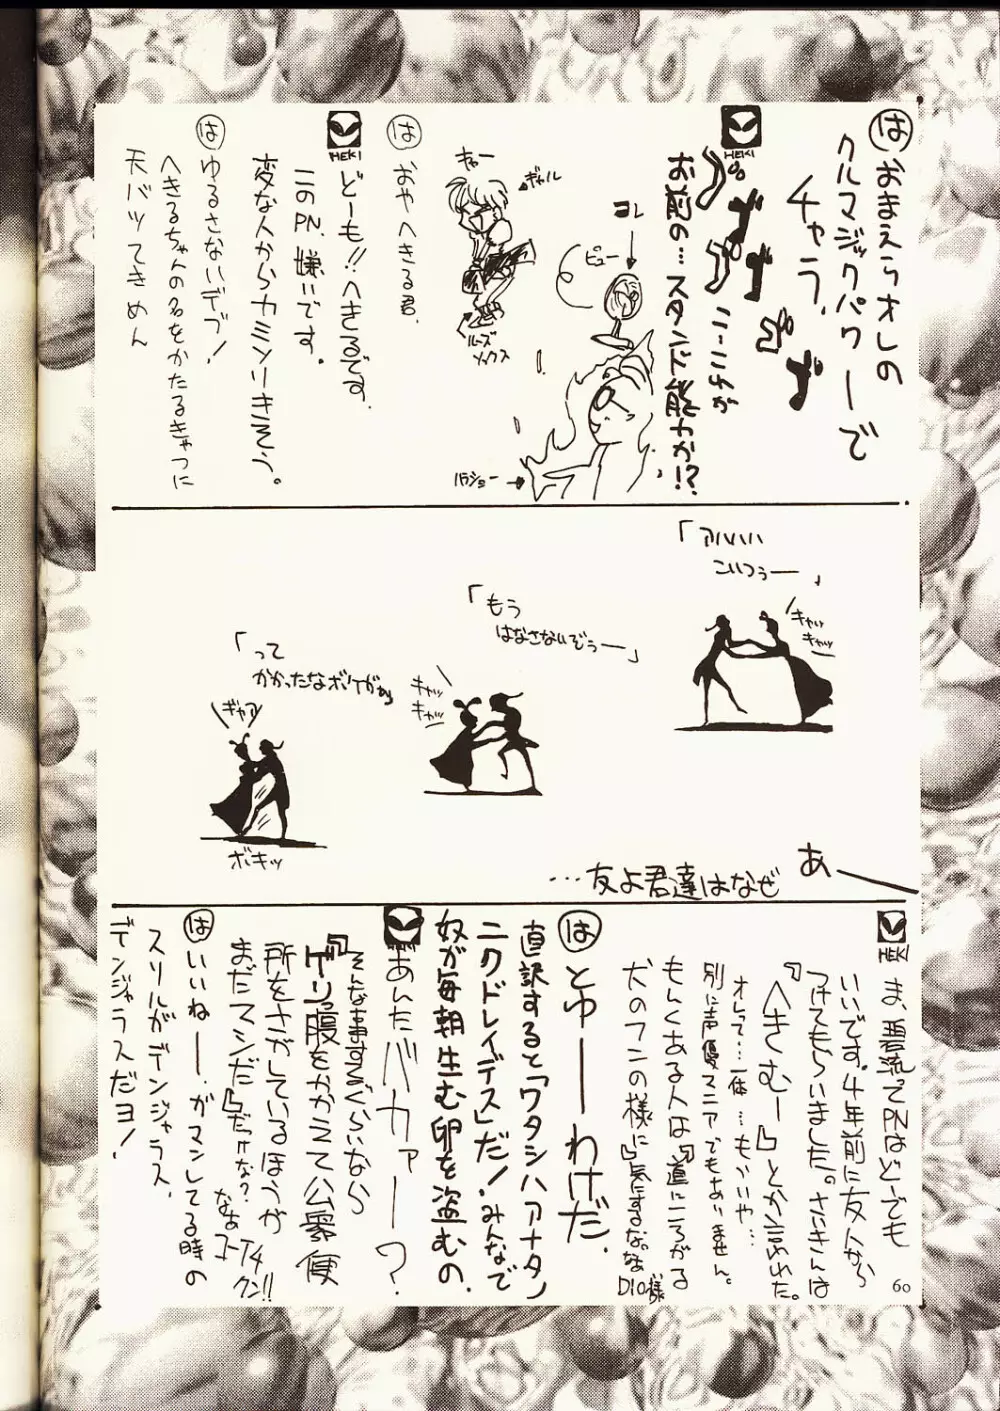 は おまえらオレの
クルマジックパワーで
チャラ、
HEKI
ゴゴゴゴゴゴ
こ…これが
お前の…スタンド能力か!?
コレ
ビュー
ギャル
キュー
ルーズ
ソックス
は おやへきる君、
HEKI
どーも!!へきるです、
このPN、嫌いです。
変な人からカミソリきそう。
は ゆるさないデブ!
へきるちゃんの名をかたるきゃつに
天バツてきめん
「アハハハ
こいつぅー」
キャッ
キャッ
「もう
はなさないぞぅー」
キャッ
キャッ
「って
かかったなボケがぁ
ギャア
ボキッ
あー
…友よ君達はなぜ
HEKI
ま、普流ってPNはどーでも
いいです。4年前に友人から
つけてもらいました。さいきんは
『へきむー』とか言われた。
オレって…一体…もういいや…
別に声優マニアでもありません。
もんくある人は『道にころがる
犬のフンの様に』気にするな。なぁ
DIO様
は とゆーわけだ、
直訳すると「ワタシハアナタノ
ニクドレイデス」だ!みんなで
奴が毎朝生む卵を盗むの、
あんたバカァー?
そんな事するぐらいなら
『ゲリっ腹をかかえて公衆便
所をさがしているほうが
まだマシだ』だっけな?
なぁ
クン!!
は いいねー、ガマンしてる時の
スリルがデンジャラス、
デンジャラスだヨ!
60